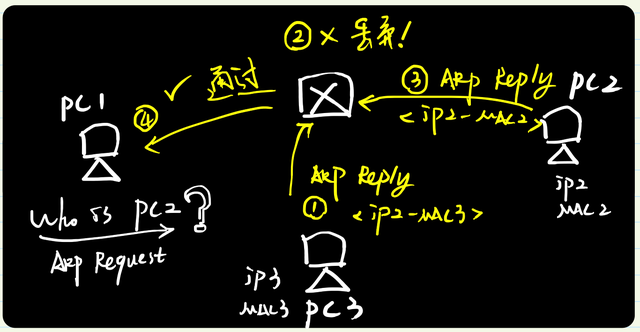 ② × 丢弃!
③ ARP Reply
PC2
PC1
④ ✓ 通过
<ip2-MAC2>
ARP Reply
ip2
MAC2
① <ip2-MAC3>
Who is PC2?
ARP Request
ip3
MAC3 PC3